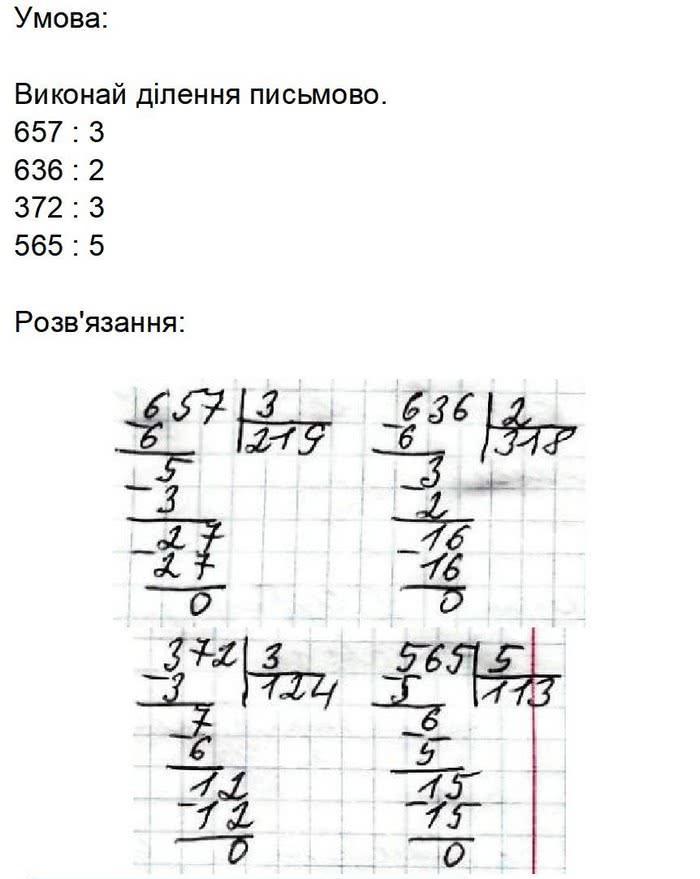 Умова:
Виконай ділення письмово.
657 : 3
636 : 2
372 : 3
565 : 5
Розв'язання:
657 3
- 6 219
5
- 3
27
- 27
0
636 2
- 6 318
3
- 2
16
- 16
0
372 3
- 3 124
7
- 6
12
- 12
0
565 5
- 5 113
6
- 5
15
- 15
0